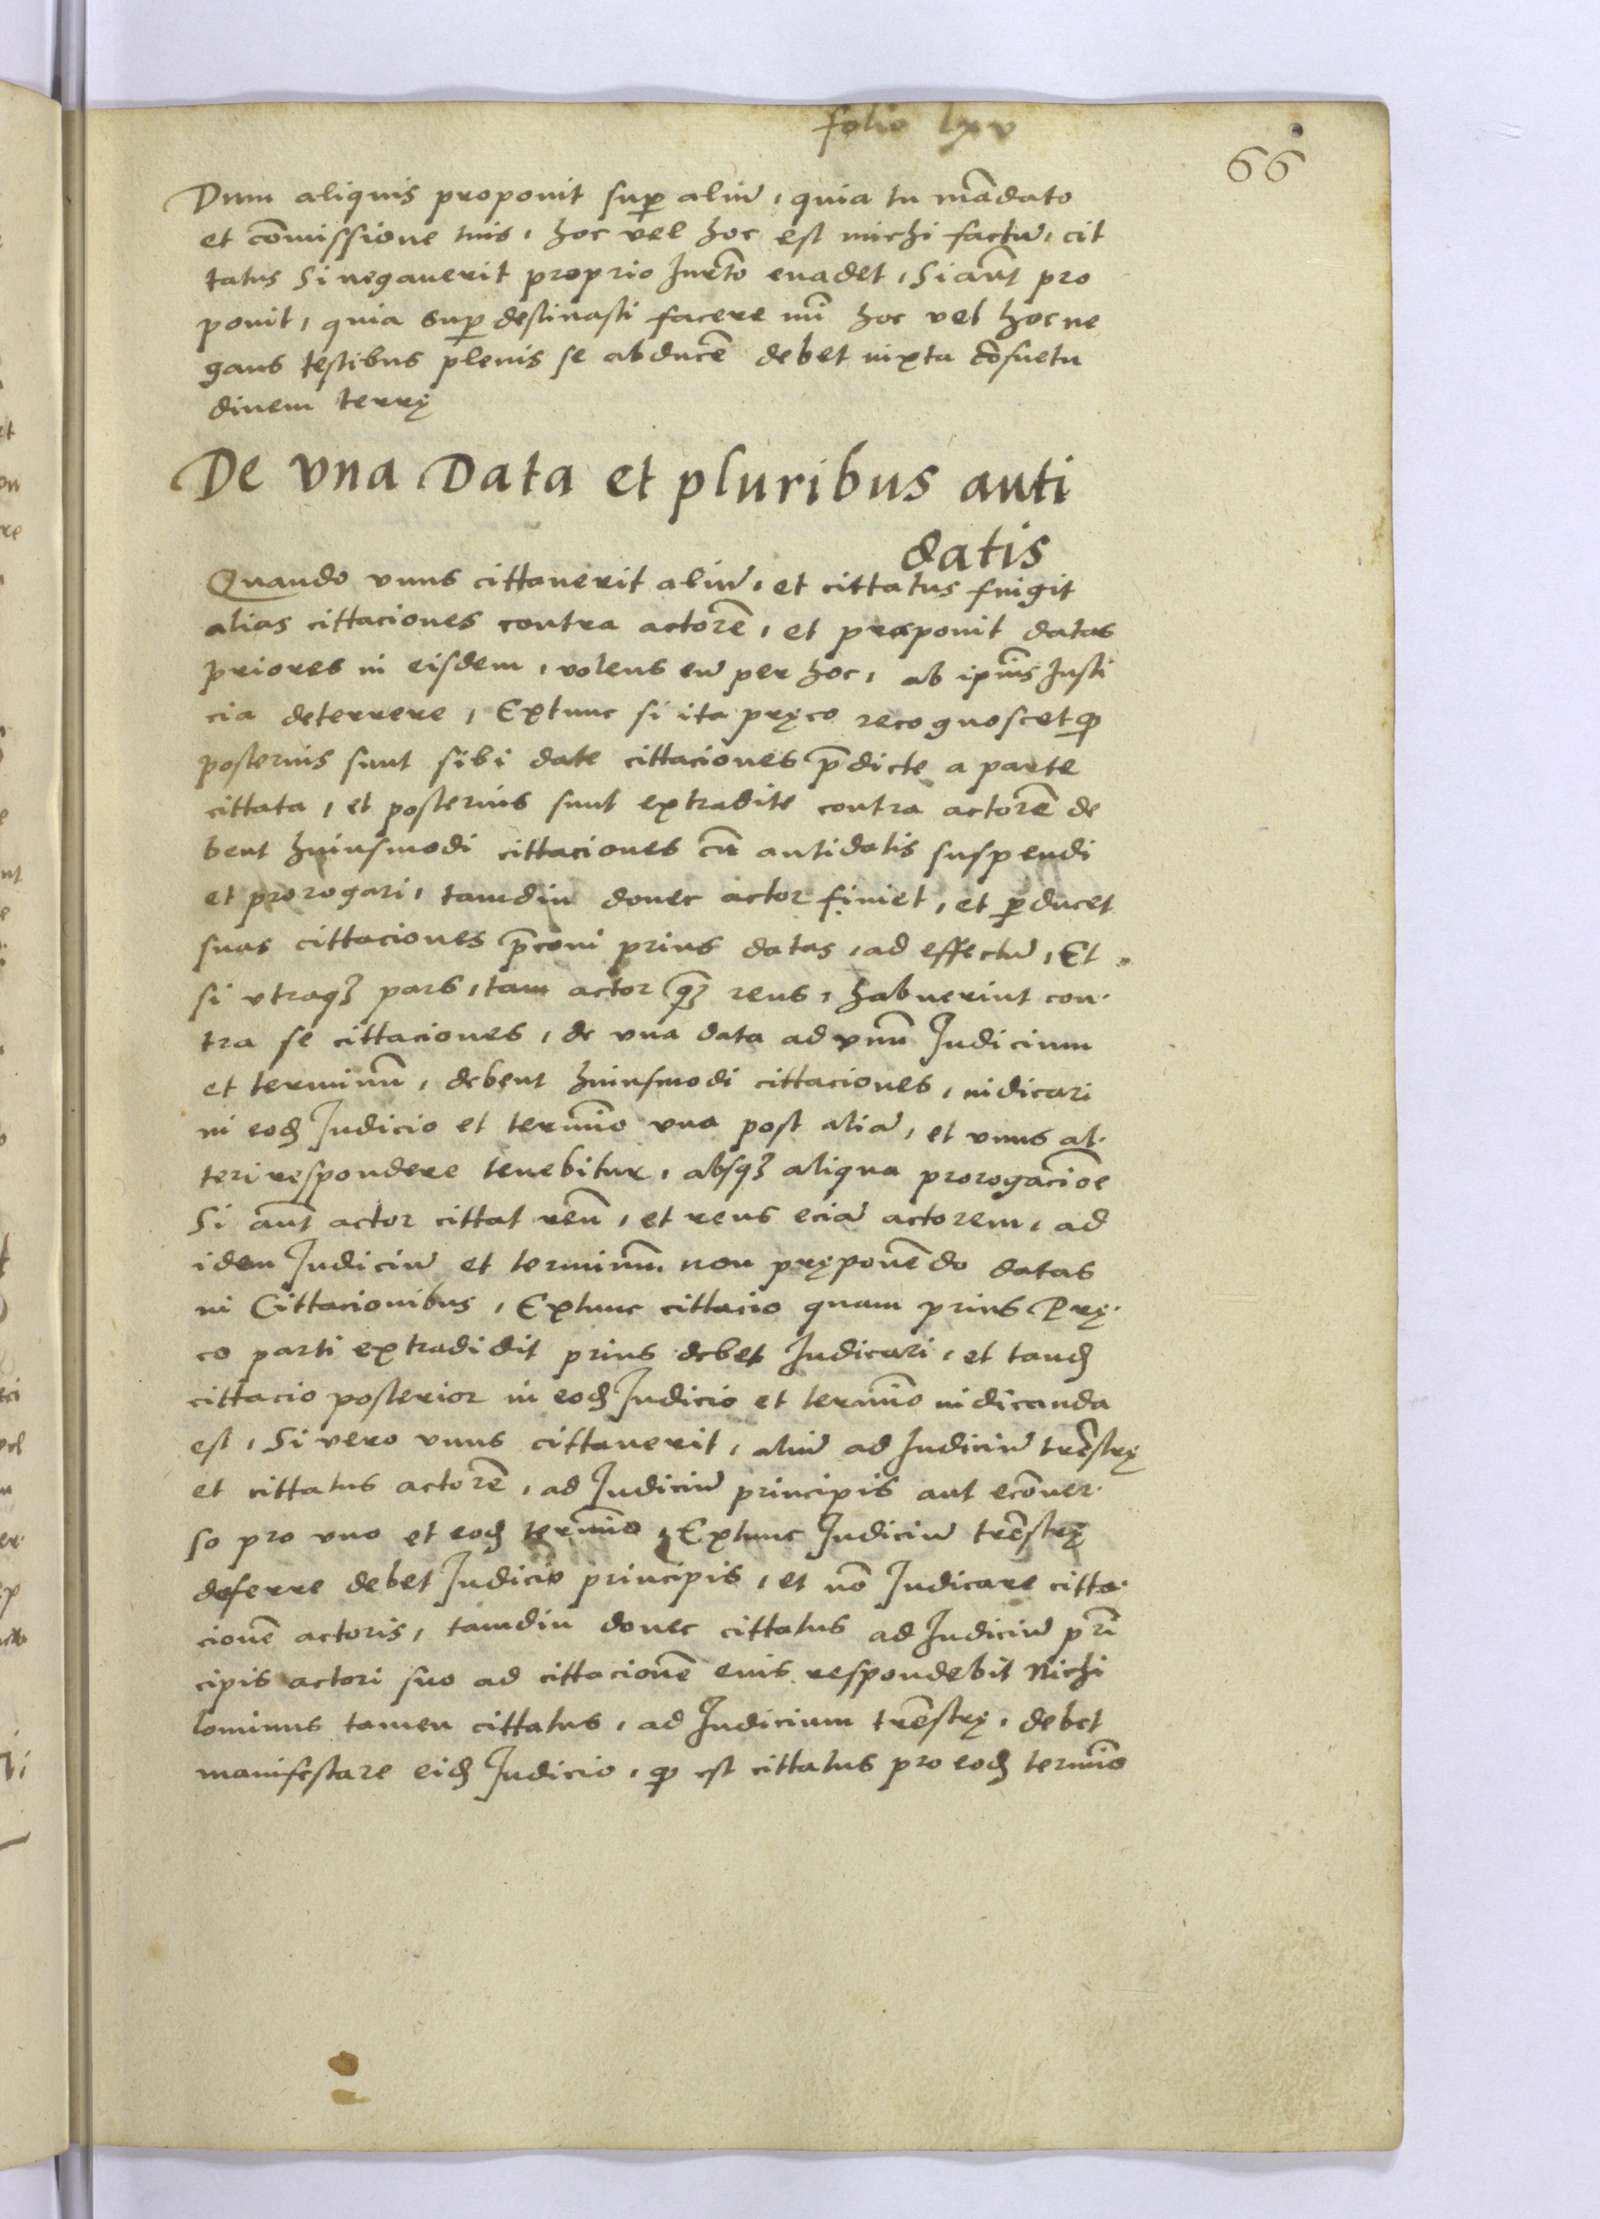 folio lxv
66
Dum aliquis proponit sup̱ aliū, quia tu mādato
et cōmissione tuis, hoc vel hoc est michi factū, cit
tatus Si negauerit proprio Iurēto euadet, Si aūt pro
ponit, quia sup̱ destinasti facere mī hoc vel hoc ne
gans testibus plenis se abducē debet iuxta cōsuetu
dinem terrę
De vna Data et pluribus anti
datis
Quando vnus cittauerit aliū, et cittatus fingit
alias cittaciones contra actorē, et praponit datas
priores in eisdem, volens eū per hoc, ab ipīus Iusti
cia deterrere, Extunc si ita pręco recognoscet ꝙ
posterius sunt sibi date cittaciones p̄dicte a parte
cittata, et posterius sunt extradite contra actorē de
bent huiusmodi cittaciones cū antidatis suspendi
et prorogari, tamdiu donec actor finiet, et ꝑducet
suas cittaciones p̄coni prius datas, ad effectū, Et
si vtraqꝫ pars, tam actor qꝫ reus, habuerint con-
tra se cittaciones, de vna data ad vnū Iudicium
et terminū, debent huiusmodi cittaciones, iudicari
in eoḏ Iudicio et termīo vna post aliā, et vnus al-
teri respondere tenebitur, absqꝫ aliqua prorogacīoe
Si aūt actor cittat reū, et reus eciā actorem, ad
idem Iudiciū et terminū non pręponēdo datas
in Cittacionibus, Extunc cittacio quam prius Prę-
co parti extradidit prius debet Iudicari, et tanḏ
cittacio posterior in eoḏ Iudicio et termīo iudicanda
est, Si vero vnus cittauerit, aliū ad Iudiciū trēstrę
et cittatus actorē, ad Iudiciū principis aut ecōuer-
so pro vno et eoḏ termīo, Extunc Iudiciū trēstrę
deferre debet Iudicio principis, et nō Iudicare citta-
cionē actoris, tamdiu donec cittatus ad Iudiciū prī
cipis actori suo ad cittacionē eius respondebit Nichi
lominus tamen cittatus, ad Iudicium trēstrę, debet
manifestare eiḏ Iudicio, ꝙ est cittatus pro eoḏ termīo